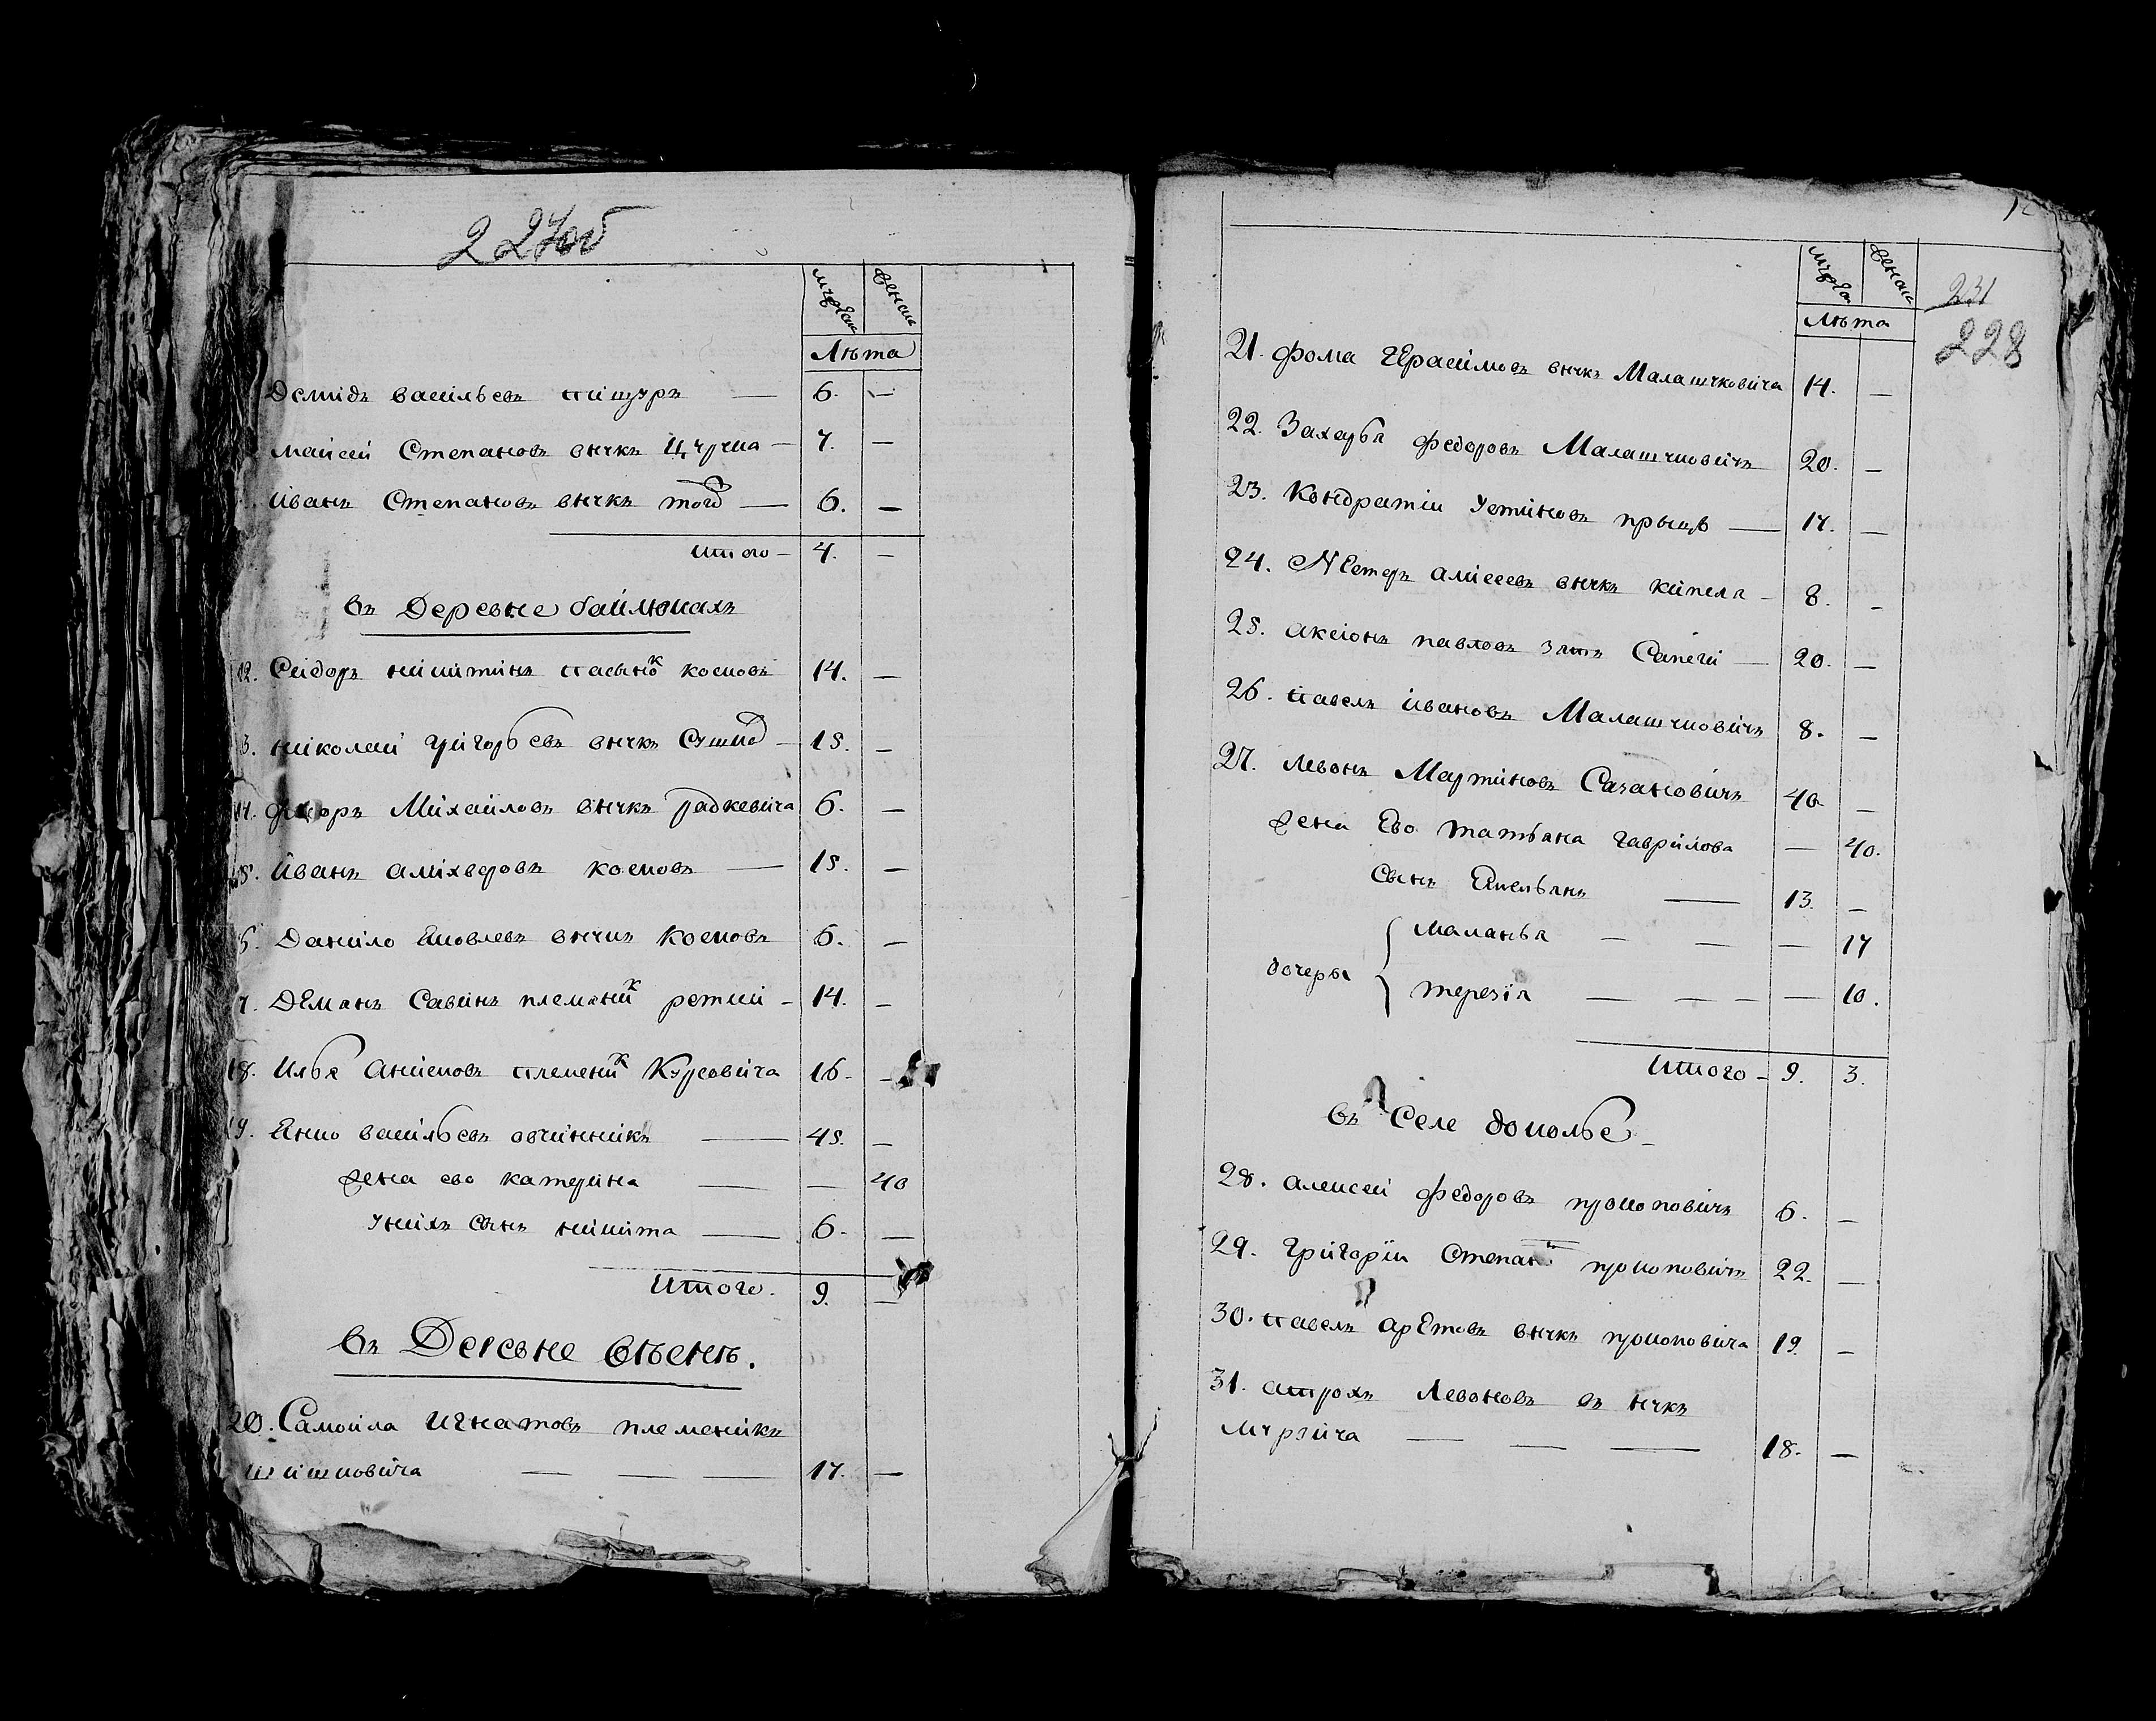 227об
мужеска женска
Лѣта
Демидъ васильевъ пищуръ — 6. —
Моисей Степановъ внукъ — 7. —
Иванъ Степановъ внукъ того — 6. —
итого — 4. —
въ Деревне
12. Сидоръ никитинъ пасынок косковъ 14. —
3. николай григорьевъ внукъ — 15. —
14. Михайловъ внукъ радкевича 6. —
15. Иванъ косковъ — 15. —
6. Данило Яковлевъ внукъ Косковъ 6. —
7. Деманъ Савинъ племяник — 14. —
18. Илья племеник 16 — —
19. Янко васильевъ овчинникъ — 45. —
жена ево катерина — — 40
У нихъ сынъ никита — 6. —
Итого. 9. —
въ Деревне
20. Самойла Игнатовъ племеникъ
Шишковича — — — 17. —
231
228
мужеска женска
Лѣта
21. Фома Герасимовъ внукъ Малашуковича 14. —
22. Захарья Федоровъ Малашуковичъ 20. —
23. Кондратiи Устиновъ — 17. —
24. Нестеръ внукъ кипеля — 8. —
25. аксiонъ павловъ зять Сапеги — 20. —
26. павелъ ивановъ Малашуковичъ 8. —
27. Левонъ Мартиновъ Сазановичъ 40 —
жена Ево татьяна гаврилова — 40.
Сынъ Емельянъ — 13. —
дочеры { Маланья — — — 17
терезiя — — — — 10.
Итого — 9. 3.
въ Селе
28. алексей федоровъ прокоповичъ 6. —
29. Григорiи прокоповичъ 22. —
30. павелъ внукъ прокоповича 19. —
31. Левоновъ внукъ
— — — 18. —